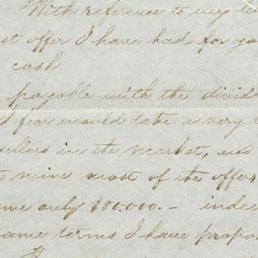 With reference to my le
st offer I have had for yo
cash
payable with the divid
I fear would take a very l
sellers in the market, and
t mine most of the offers
me only $80.000.— indee
same terms I have propo